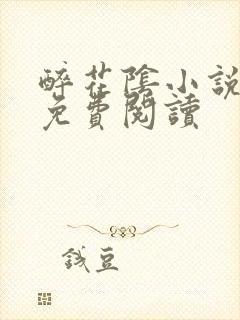 醉花陰小說
免費閱讀
錢豆